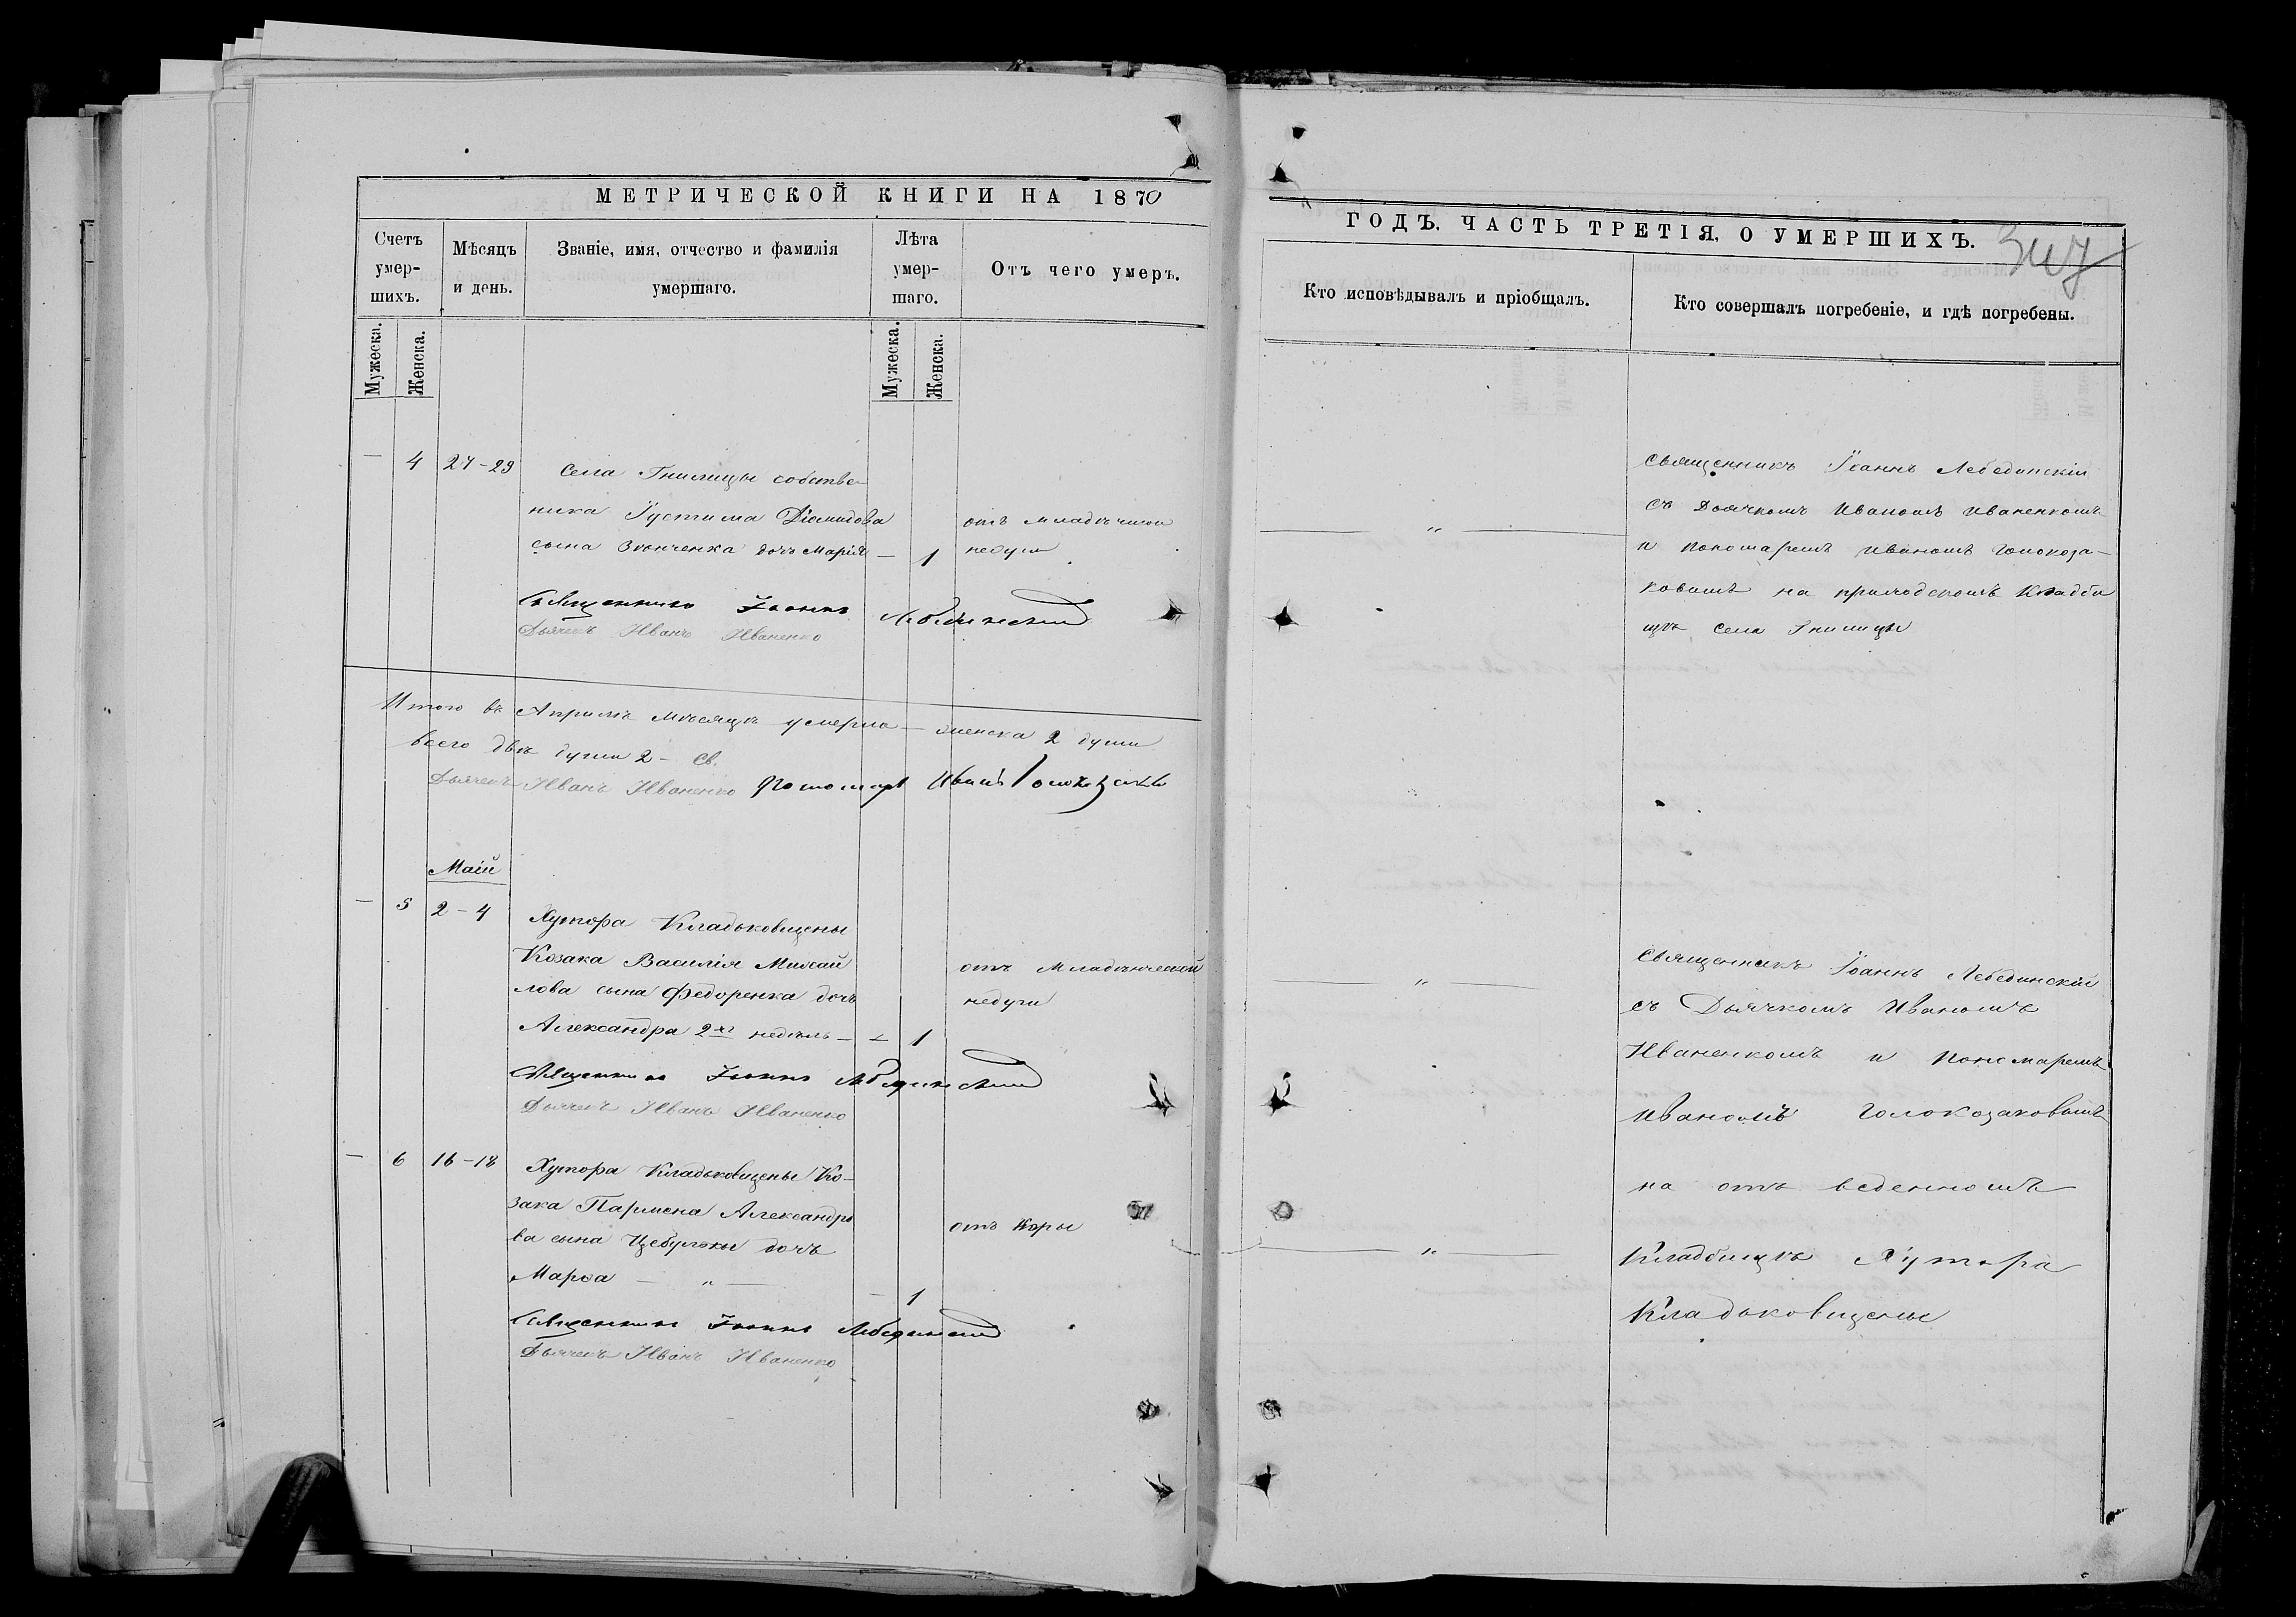 МЕТРИЧЕСКОЙ КНИГИ НА 1870
Счетъ умер-шихъ.
Мѣсяцъ и день.
Званіе, имя, отчество и фамилія умершаго.
Лѣта умер-шаго.
Отъ чего умеръ.
Мужеска. Женска.
Мужеска. Женска.
— 4 27-29 Села Гнилицы собстве-
ника Іустима Діомидова
сына Зѣнченка дочь Марія — 1
отъ младенческой
недуги
Священникъ Іоаннъ Лебединский
Дьячекъ Иванъ Иваненко
Итого въ Априлѣ мѣсяцѣ умерло — женска 2 души
всего двѣ души 2 - Св.
Дьячекъ Иванъ Иваненко Пономарь Иванъ Голоказаковъ
Маій
— 5 2-4 Хутора Кладьковщены
Козака Василія Михай
лова сына Федоренка дочь
Александра 2хъ недѣль — — 1
отъ младенческой
недуги
Священникъ Іоаннъ Лебединский
Дьячекъ Иванъ Иваненко
— 6 16-18 Хутора Кладьковщены Ко-
зака Пармена Александро
ва сына Цебульки дочь
Марѳа — " — — 1
отъ Коры
Священникъ Іоаннъ Лебединский
Дьячекъ Иванъ Иваненко
ГОДЪ, ЧАСТЬ ТРЕТІЯ, О УМЕРШИХЪ.
Кто исповѣдывалъ и пріобщалъ.
Кто совершалъ погребеніе, и гдѣ погребены.
— " —
Священникъ Іоаннъ Лебединскій
съ Дьячкомъ Иваномъ Иваненкомъ
и пономаремъ Иваномъ Голокоза-
ковымъ на приходскомъ Кладби
щѣ села Гнилицы
— " —
Священникъ Іоаннъ Лебединскій
съ Дьячкомъ Иваномъ
Иваненкомъ и Пономаремъ
Иваномъ Голокозаковымъ
на отъ веденномъ
— " —
Кладбищѣ Хутора
Кладьковщены